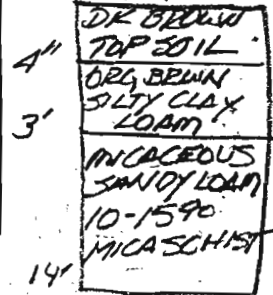 DK BROWN
TOP SOIL
4"
ORG BRWN
SILTY CLAY
LOAM
3'
MICACEOUS
SANDY LOAM
10-15%
MICA SCHIST
14'